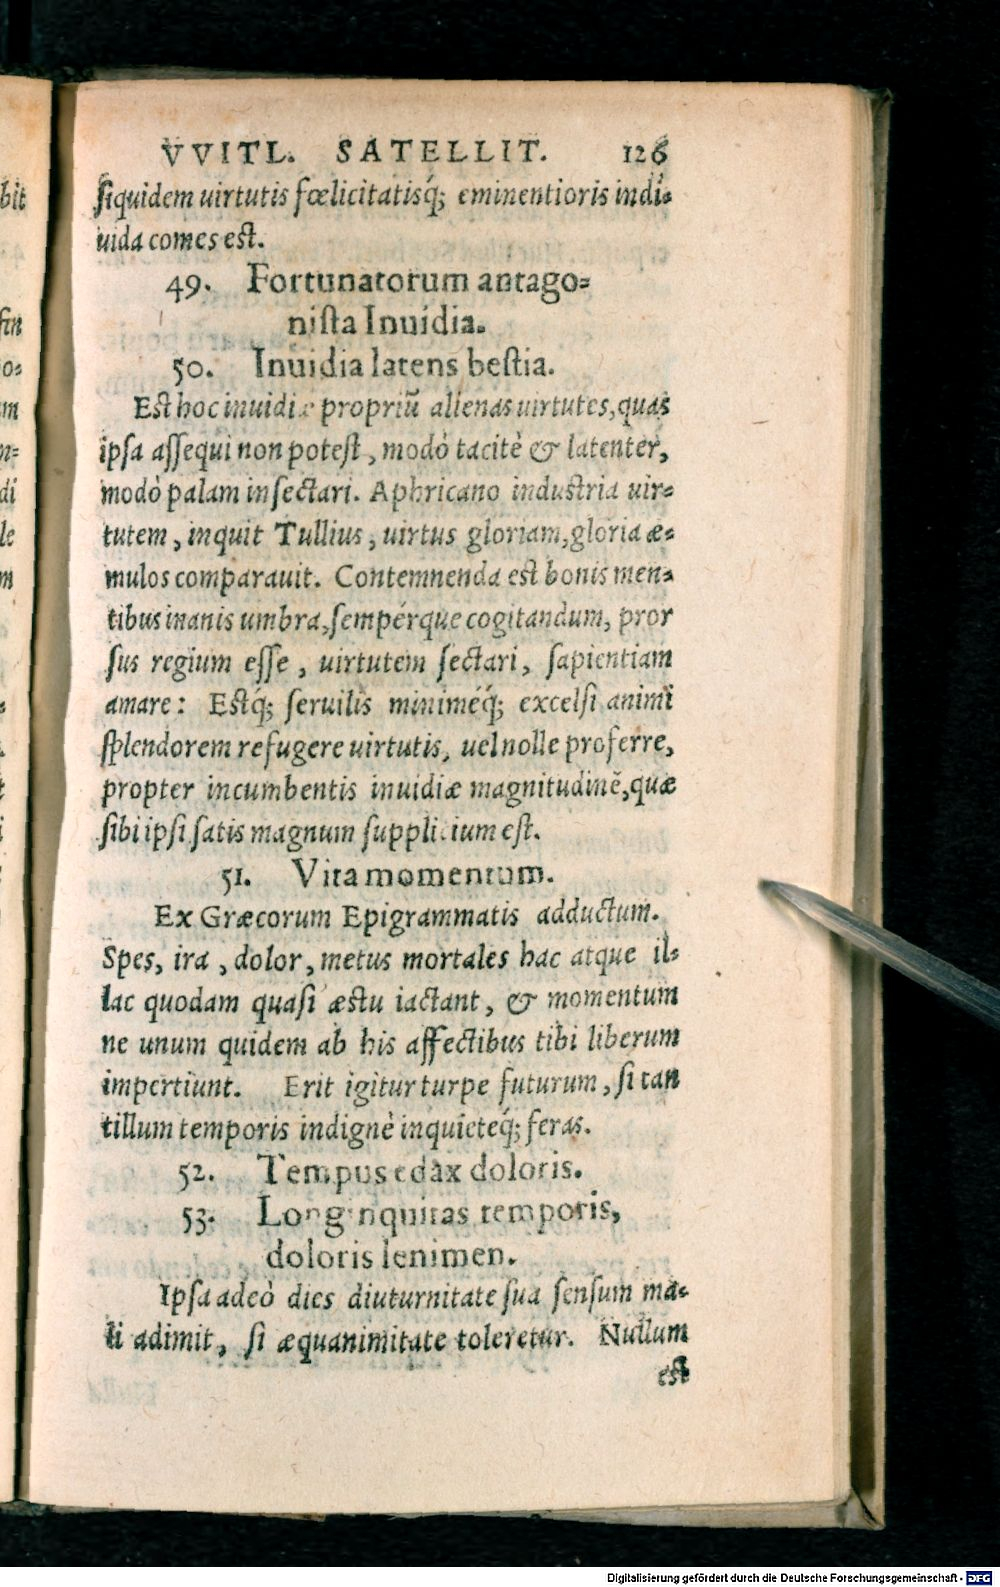 VVITL. SATELLIT. 126
siquidem uirtutis fœlicitatisq́; eminentioris indi-
uida comes est.
49. Fortunatorum antago-
nista Inuidia.
50. Inuidia latens bestia.
Est hoc inuidiæ propriũ alienas uirtutes, quas
ipsa assequi non potest, modò tacitè & latenter,
modò palam insectari. Aphricano industria uir-
tutem, inquit Tullius, uirtus gloriam, gloria æ-
mulos comparauit. Contemnenda est bonis men-
tibus inanis umbra, sempérque cogitandum, pror
sus regium esse, uirtutem sectari, sapientiam
amare: Estq́; seruilis miniméq́; excelsi animi
splendorem refugere uirtutis, uel nolle proferre,
propter incumbentis inuidiæ magnitudinẽ, quæ
sibi ipsi satis magnum supplicium est.
51. Vita momentum.
Ex Græcorum Epigrammatis adductum.
Spes, ira, dolor, metus mortales hac atque il-
lac quodam quasi æstu iactant, & momentum
ne unum quidem ab his affectibus tibi liberum
impertiunt. Erit igitur turpe futurum, si tan
tillum temporis indignè inquieteq́; feras.
52. Tempus edax doloris.
53. Longinquitas temporis,
doloris lenimen.
Ipsa adeò dies diuturnitate sua sensum ma-
li adimit, si æquanimitate toleretur. Nullum
est
bit
fin
io-
m
n-
di
le
m
Digitalisierung gefördert durch die Deutsche Forschungsgemeinschaft - DFG